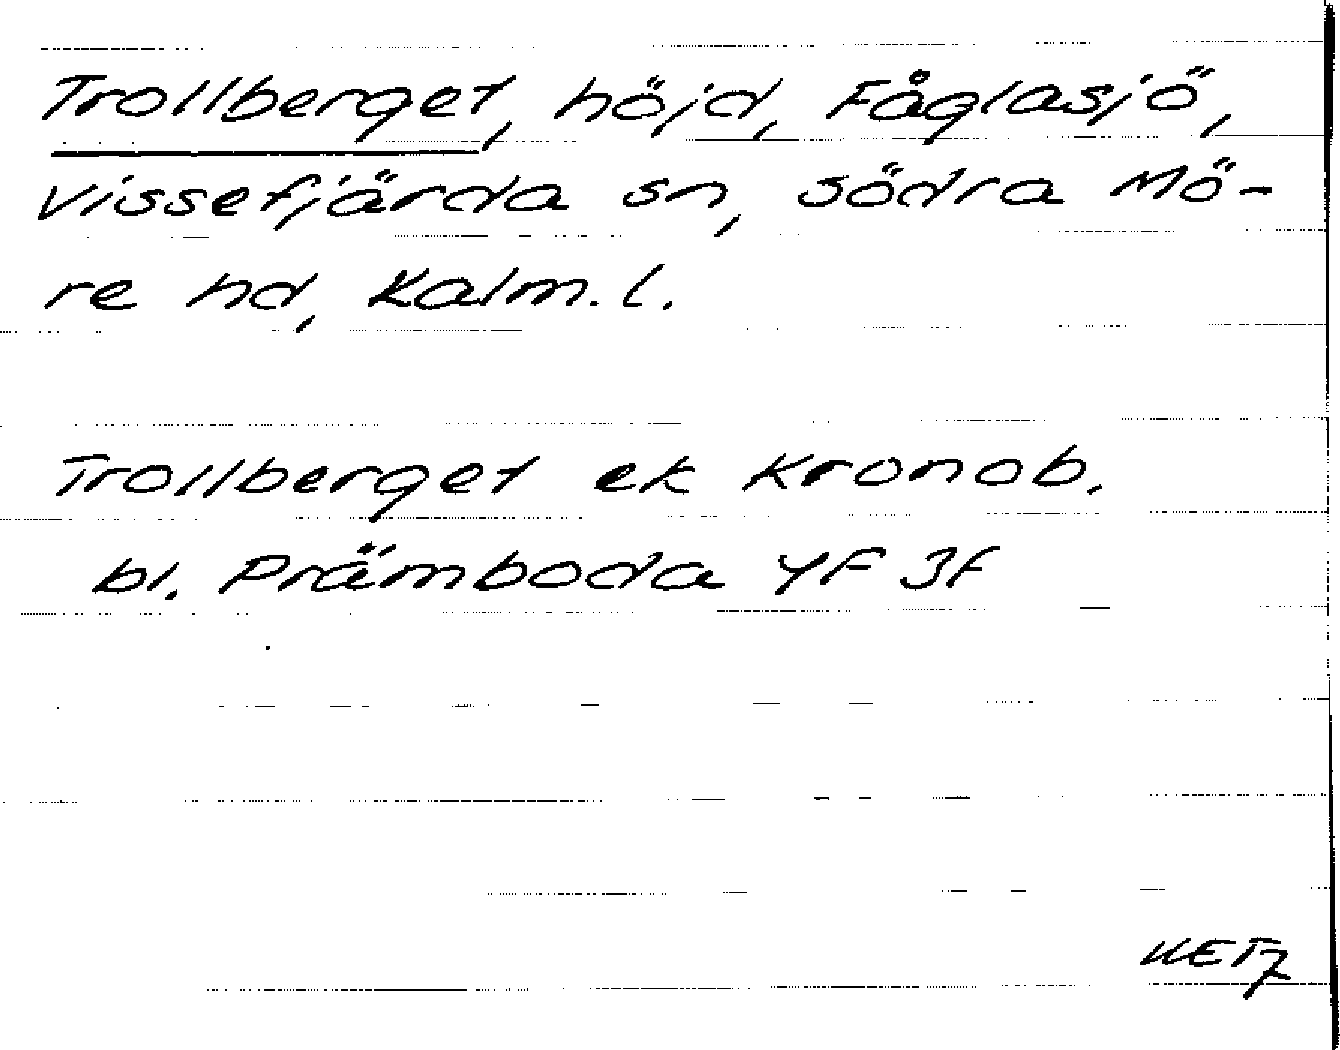 Trollberget, höjd, Fåglasjö,
Vissefjärda sn, södra Mö-
re hd, Kalm. l.
Trollberget ek Kronob.
bl. Prämboda 4F 3f